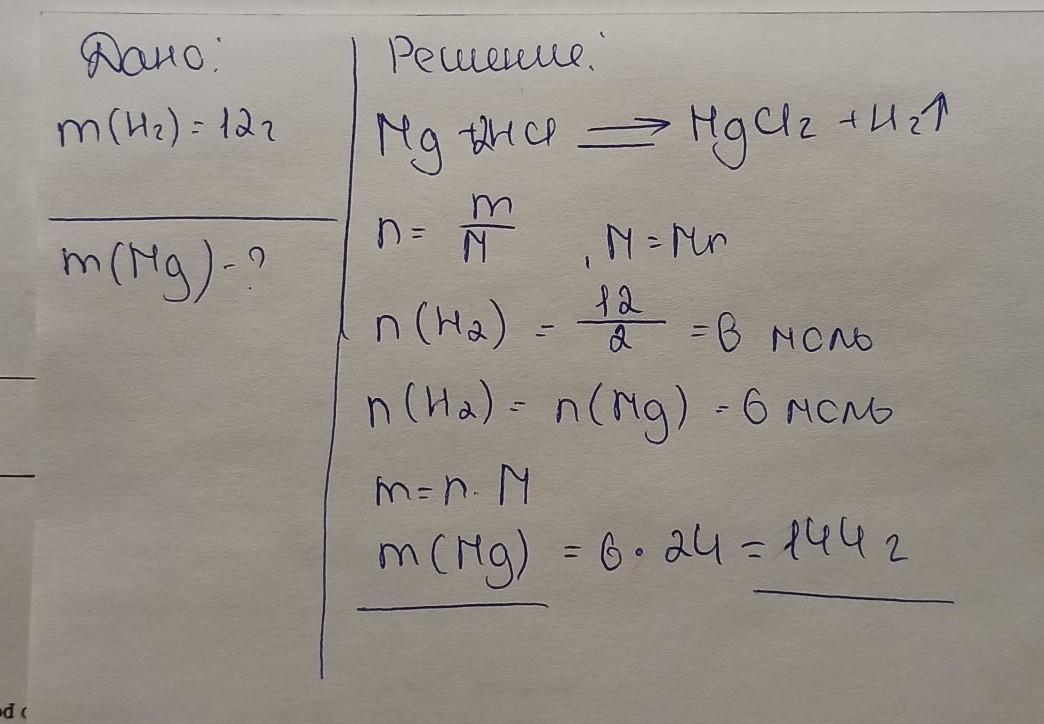 Дано:
m(H₂) = 12 г
m(Mg) - ?
Решение:
Mg + 2HCl ⟹ MgCl₂ + H₂↑
n = m/M , M = Mr
n(H₂) = 12/2 = 6 моль
n(H₂) = n(Mg) = 6 моль
m = n · M
m(Mg) = 6 · 24 = 144 г